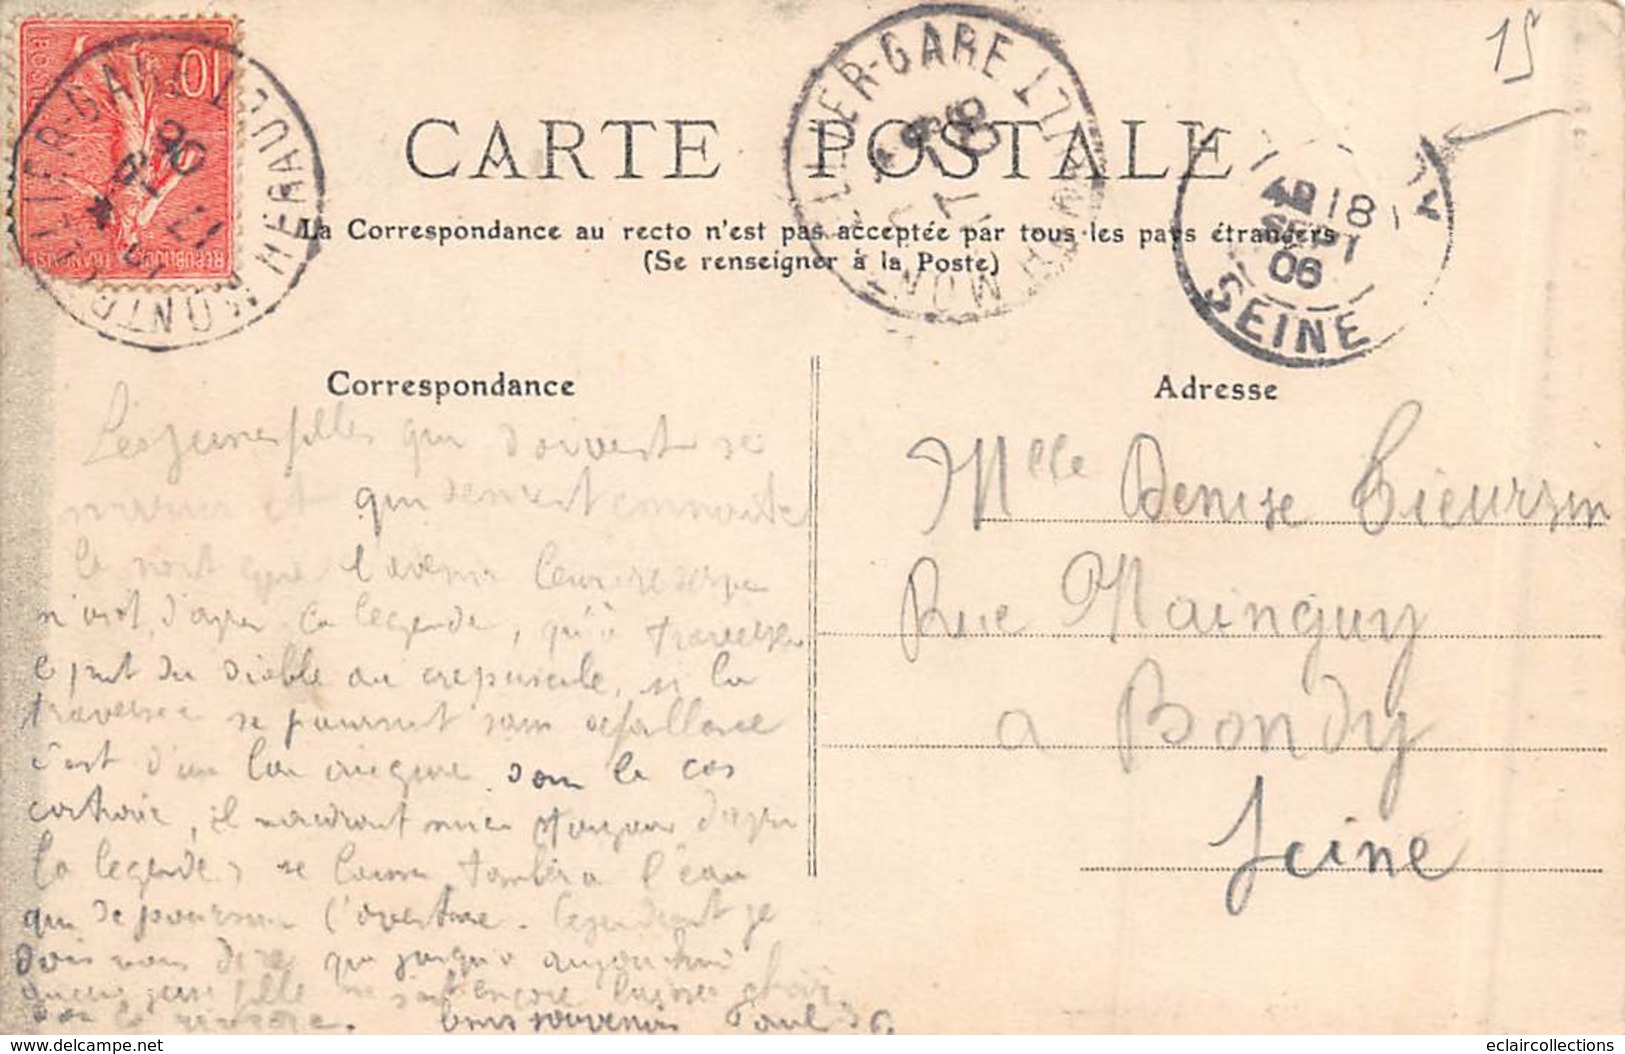 15
CARTE POSTALE
La Correspondance au recto n'est pas acceptée par tous les pays étrangers
(Se renseigner à la Poste)
10
POSTES
REPUBLIQUE FRANÇAISE
MONTPELLIER-GARE HERAULT
17
06
MONTPELLIER-GARE HERAULT
17
06
18
SEPT
06
SEINE
Correspondance
Les jeunes filles qui doivent se
marier et qui désirent connaitre
le sort que l'avenir leur réserve
n'ont, d'après la légende, qu'à traverser
le pont du diable au crepuscule, si la
traversée se poursuit sans defaillance
c'est d'un bon augure dans le cas
contraire, il vaudrait mieux d'après
la legende, se laisser tomber a l'eau
que de poursuivre l'aventure. Cependant je
dois vous dire que jusqu'a aujourdhui
aucune jeune fille ne s'est encore laissée choir
dans la rivière. bons souvenirs Paul
Adresse
Mlle Denise Tieursin
Rue Mainguy
a Bondy
Seine
delcampe.net
eclaircollections